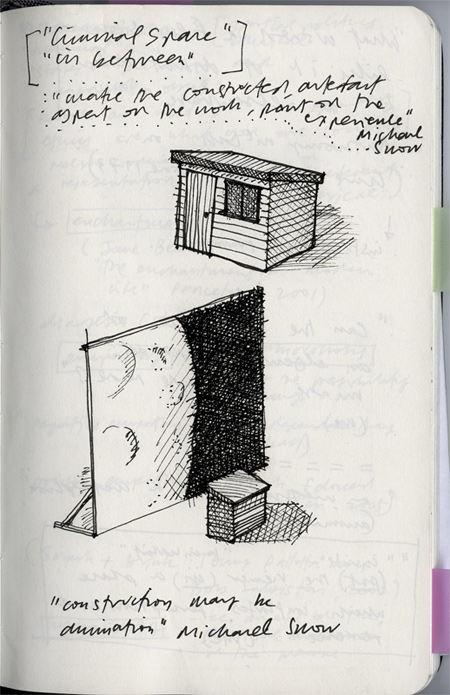 "Liminal Space"
"in between"
"make the constructed artefact
aspect on the work, part on the
experience"
Michael
Snow
"construction may be
animation" Michael Snow